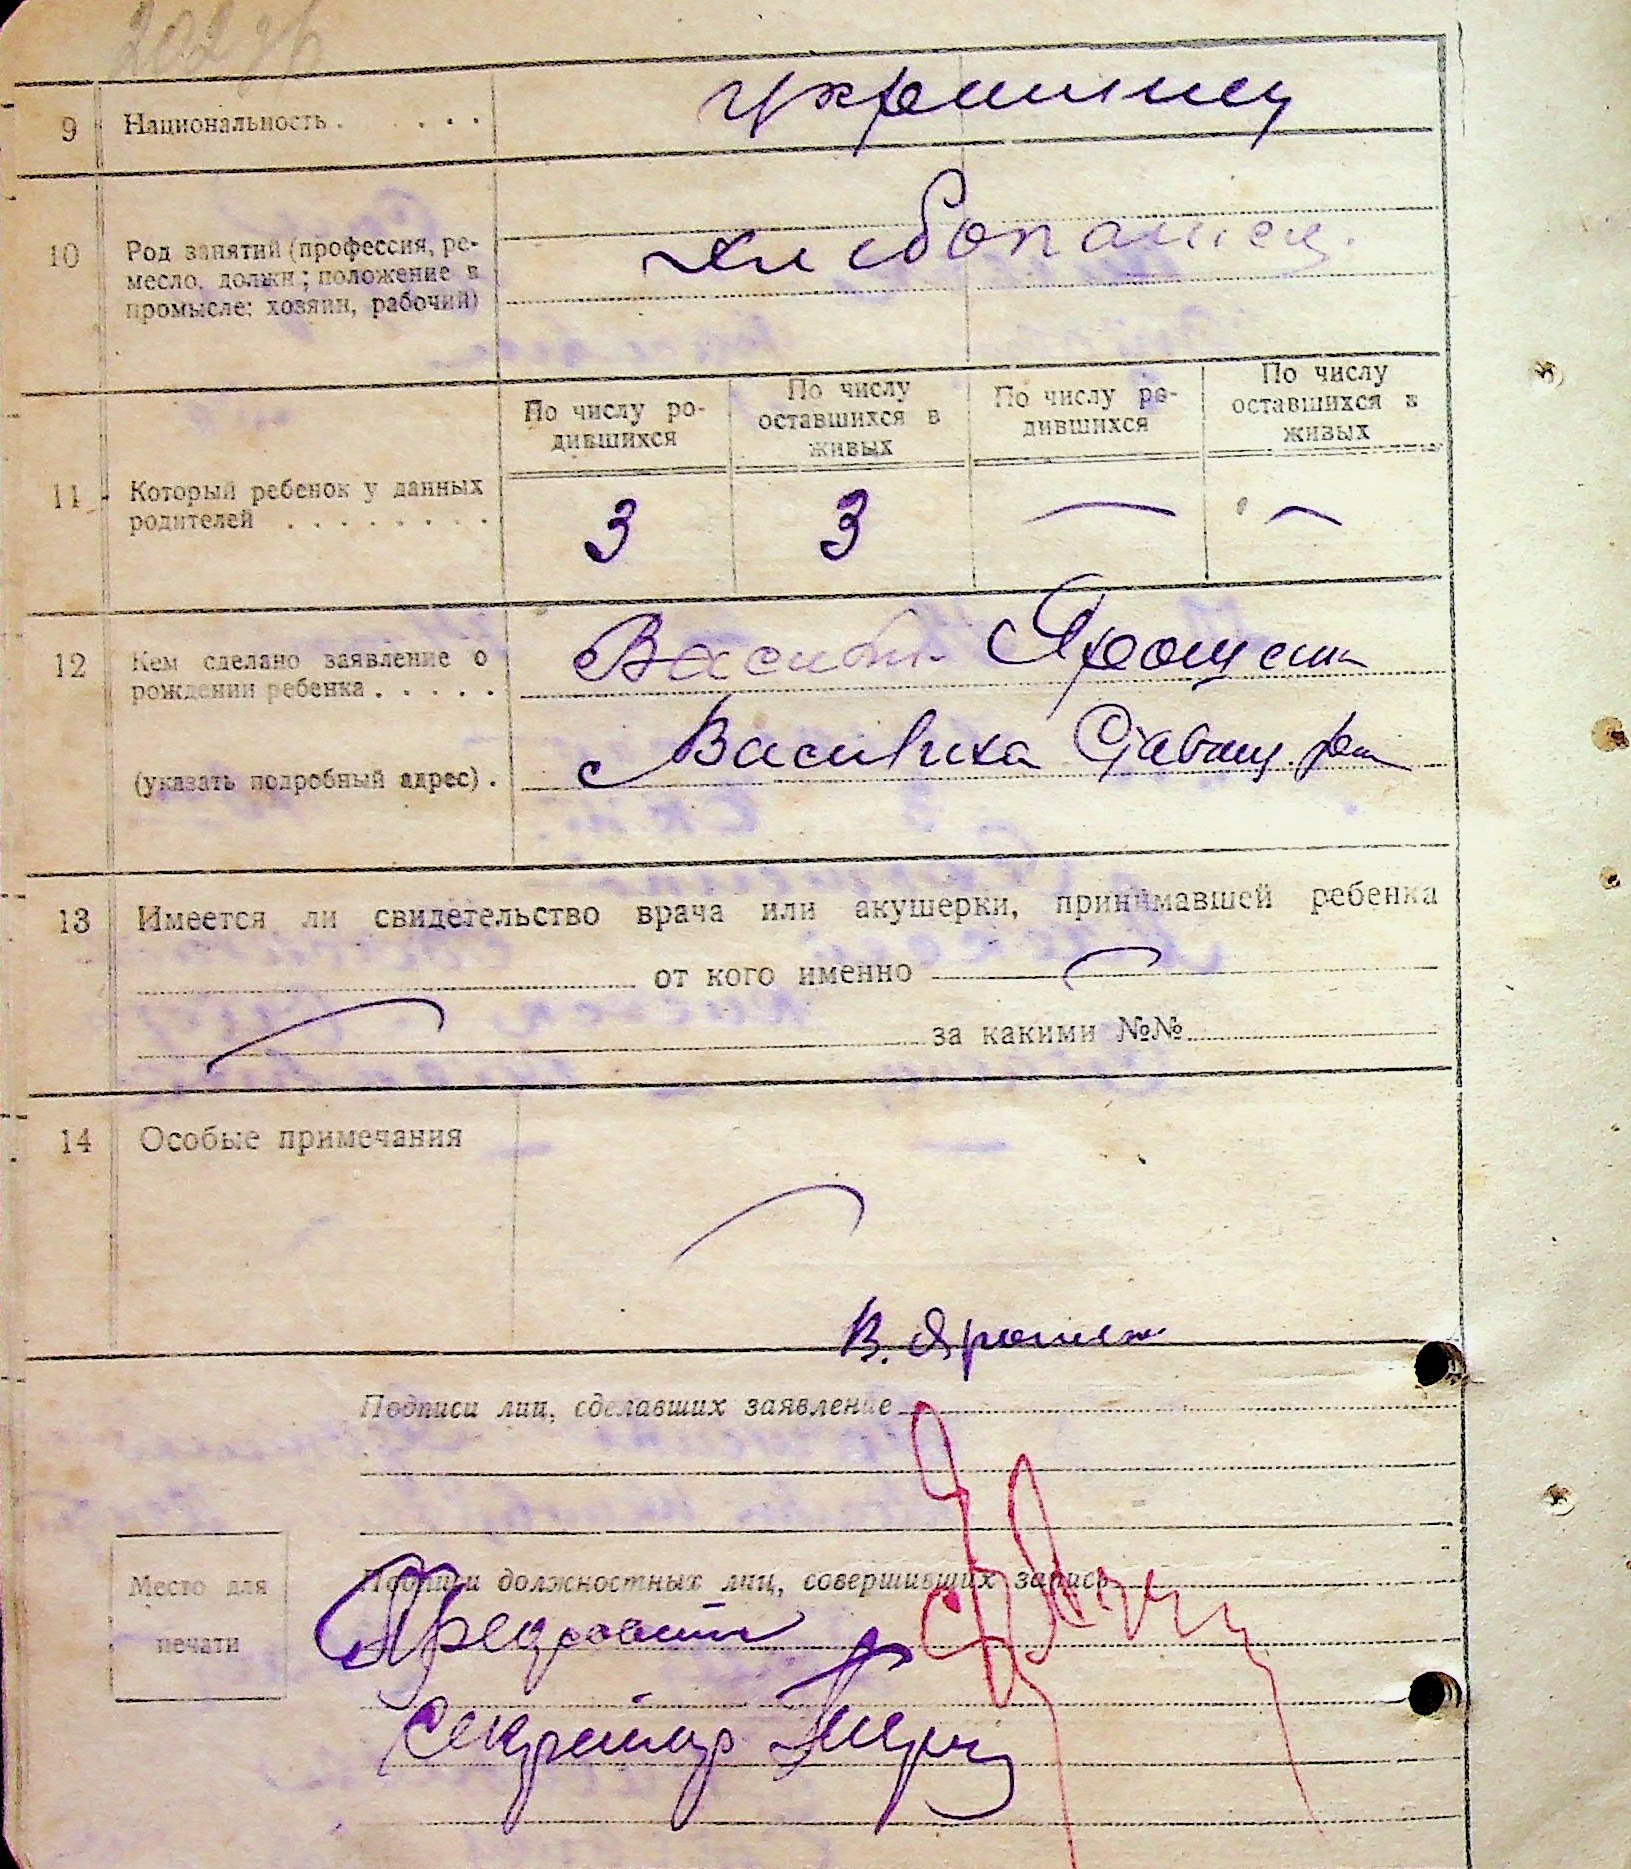 9 Национальность . . . . . украинец
10 Род занятий (профессия, ре-
месло, должн; положение в
промысле: хозяин, рабочий)
хлебопашец.
По числу ро-
дившихся
По числу
оставшихся в
живых
По числу ро-
дившихся
По числу
оставшихся в
живых
11 Который ребенок у данных
родителей . . . . . . . .
3 3 — —
12 Кем сделано заявление о
рождении ребенка . . . . .
Ярошен
(указать подробный адрес) .
Василиха Ставищ. рай
13 Имеется ли свидетельство врача или акушерки, принимавшей ребенка
от кого именно —
— за какими №№
14 Особые примечания
В. Ярошен
Подписи лиц, сделавших заявление
Место для
печати
Подписи должностных лиц, совершивших запись
Пред
секретар